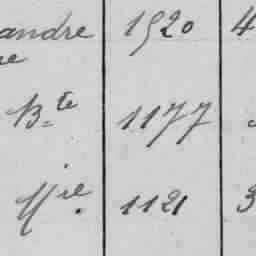 andre 1520 4
re
Bte 1177
Mre. 1121 3